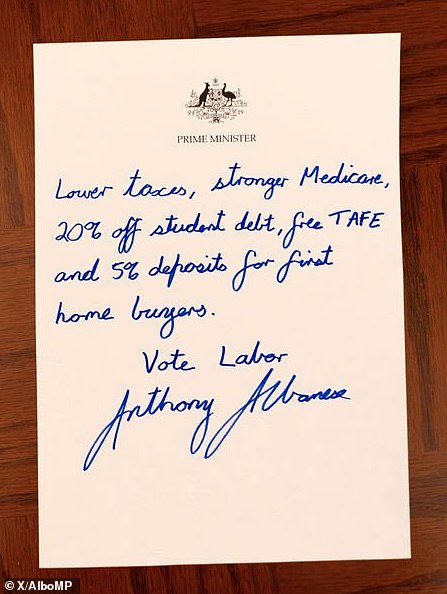 PRIME MINISTER
Lower taxes, stronger Medicare,
20% off student debt, free TAFE
and 5% deposits for first
home buyers.
Vote Labor
Anthony Albanese
© X/AlboMP